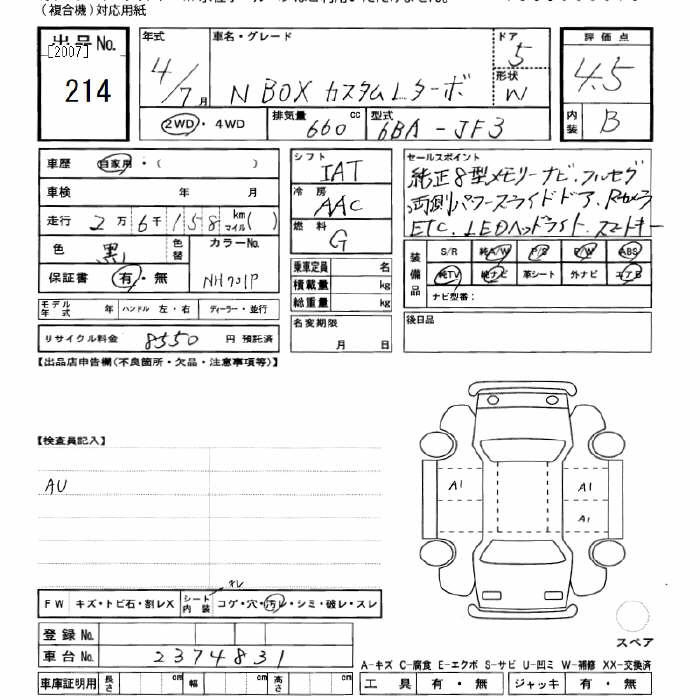 (複合機)対応用紙
出品No.
[2007]
214
年式 4/7月
車名・グレード N BOX カスタムLターボ
ドア 5
形状 W
2WD・4WD
排気量 660 cc
型式 6BA-JF3
評価点 4.5
内装 B
車歴 自家用・( )
車検 年 月
走行 2万6千158 km マイル( )
色 黒 色替 カラーNo. NH731P
保証書 有・無
モデル年式 年 ハンドル 左・右 ディーラー・並行
リサイクル料金 8550 円 預託済
シフト IAT
冷房 AAC
燃料 G
乗車定員 名
積載量 kg
総重量 kg
名変期限 月 日
セールスポイント
純正8型メモリーナビ.フルセグ
両側パワースライドドア.Rカメラ
ETC.LEDヘッドライト.スマートキー
装備品 S/R 純A/W P/S P/W ABS
純TV 純ナビ 革シート 外ナビ エアB
ナビ型番:
後日品
【出品店申告欄(不良箇所・欠品・注意事項等)】
【検査員記入】
AU
A1
A1
A1
スレ
FW キズ・トビ石・割レX シート内装 コゲ・穴・汚レ・シミ・破レ・スレ
登録No.
車台No. 2374831
車庫証明用 長さ cm 幅 cm 高さ cm
スペア
A-キズ C-腐食 E-エクボ S-サビ U-凹ミ W-補修 XX-交換済
工具 有・無 ジャッキ 有・無